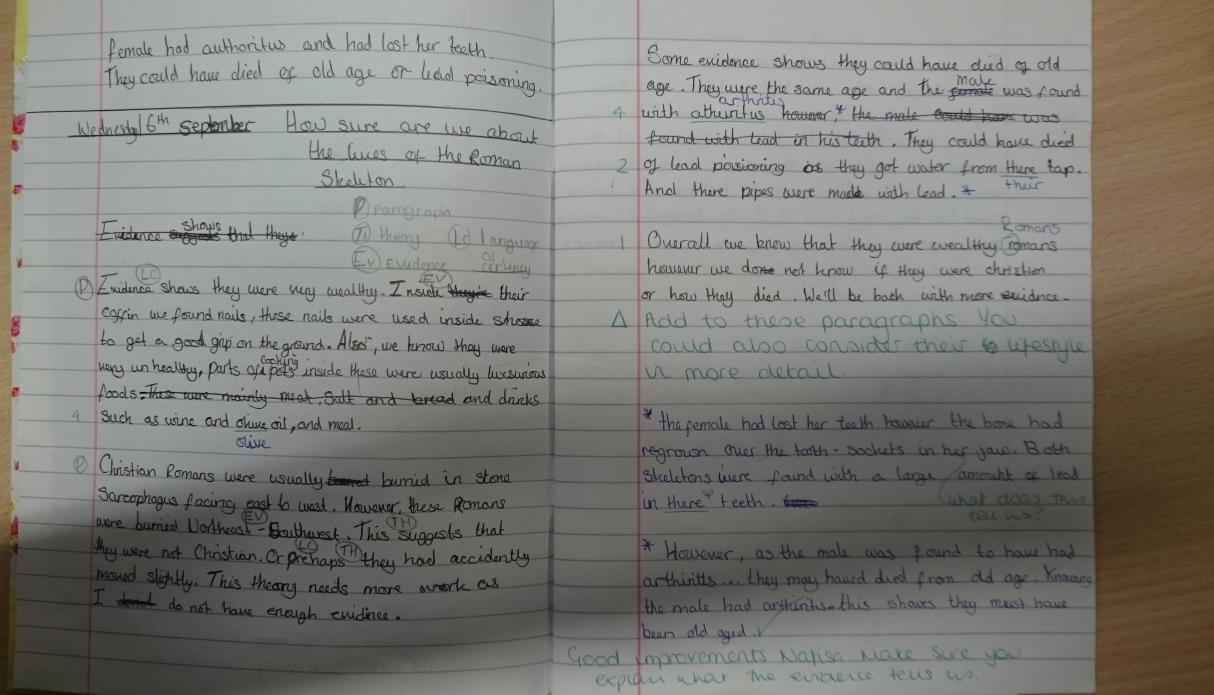 female had authoritus and had lost her teeth.
They could have died of old age or lead poisoning.
Wednesday 6th September How sure are we about
the lives of the Roman
Skeleton
(P) paragraph
shows
Evidence suggests that they
(Th) theory (Lc) language
of
(Ev) Evidence certency
(LC) (EV)
(P) Evidence shows they were very wealthy. Inside they're their
coffin we found nails, these nails were used inside shoese
to get a good grip on the ground. Also, we know they were
cooking
very unhealthy, parts of pots inside these were usually luxsurious
foods. These were mainly meat, salt and bread and drinks
4 Such as wine and olive oil, and meal.
olive
(P) Christian Romans were usually burried in stone
Sarcophagus facing east to west. However, these Romans
(EV) (TH)
were burried Northeast - Southwest. This suggests that
(LC) (TH)
they were not Christian. Or prehaps they had accidently
moved slightly. This theory needs more work as
I do not have enough evidince.
Some evidence shows they could have died of old
male
age. They were the same age and the female was found
arthritis
4 with athuritus however,* the male could have was
found with lead in his teeth. They could have died
2 of lead poisioning as they got water from there tap.
their
And there pipes were made with lead. *
Romans
1 Overall we know that they were wealthy romans
however we do not know if they were christion
or how they died. We'll be back with more evidnce.
Δ Add to these paragraphs. You
could also consider their lifestyle
in more detail.
* the female had lost her teeth however the bone had
regrown over the tooth-sockets in her jaw. Both
skeletons were found with a large amount of lead
in there teeth.
what does this
tell us?
* However, as the male was found to have had
arthiritts... they may haved died from old age. Knowing
the male had arthiritis this shows they must have
been old aged.
Good improvements Nafisa. Make sure you
explain what the evidence tells us.